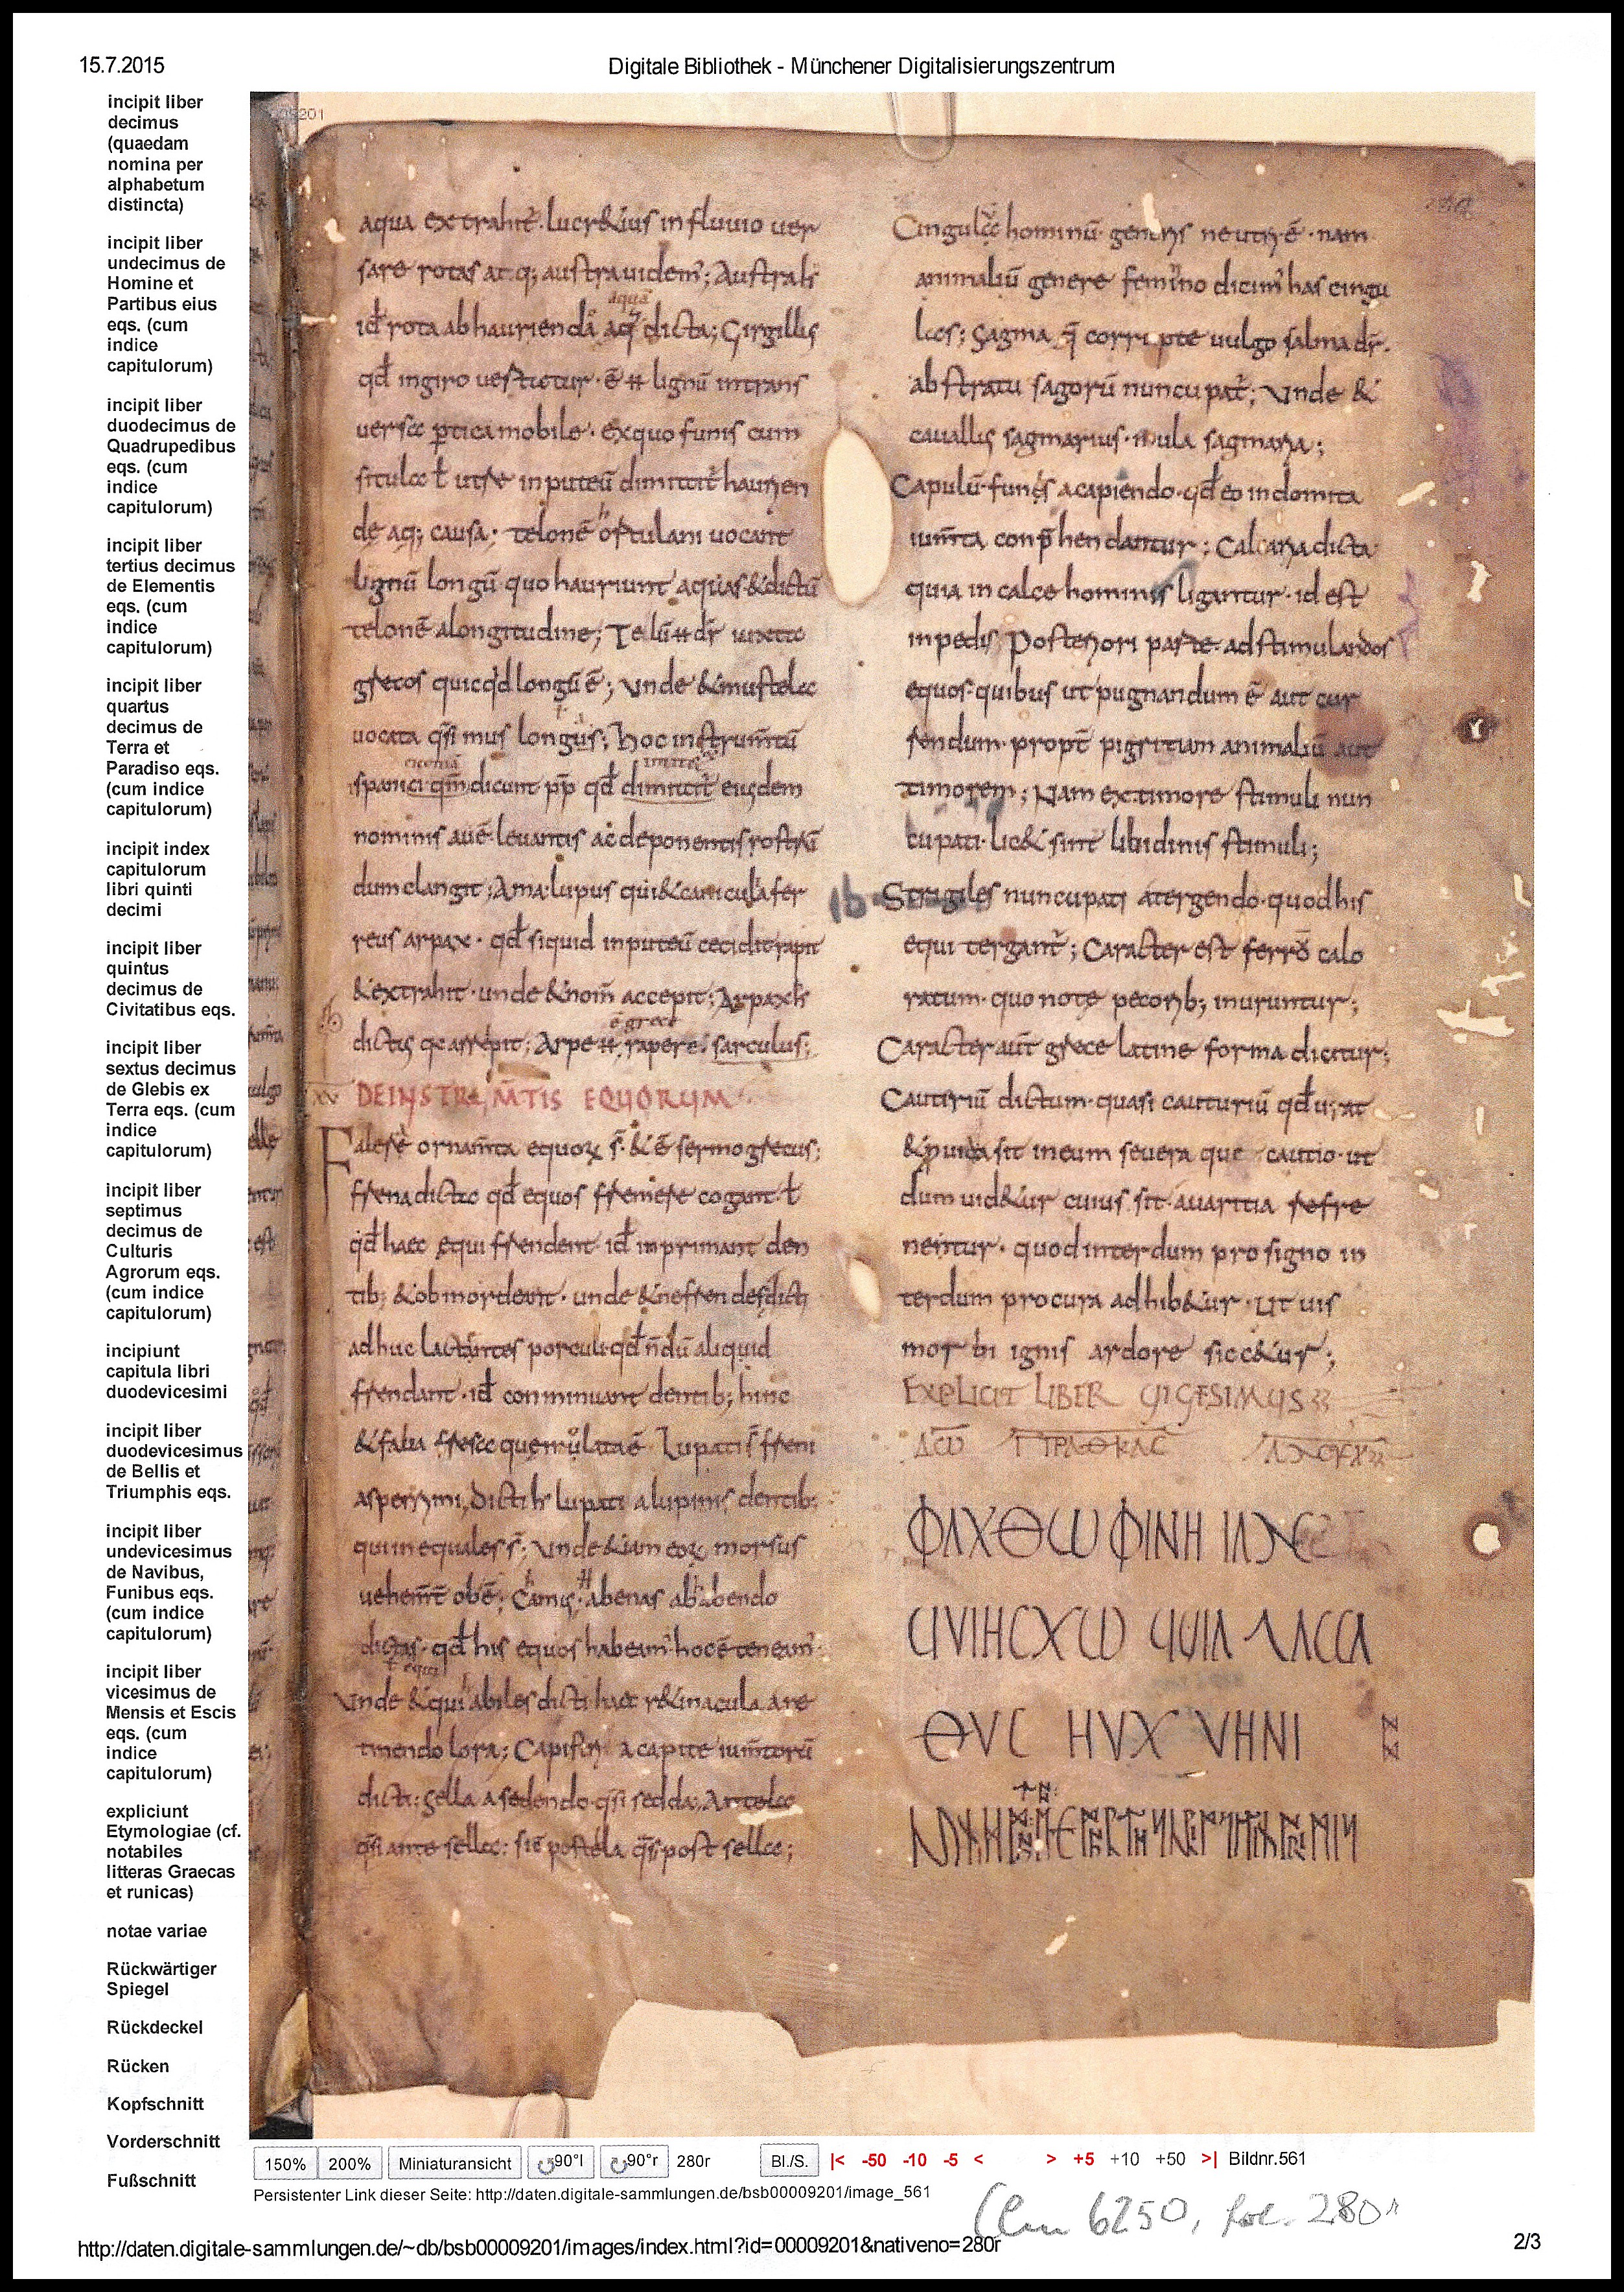 15.7.2015
Digitale Bibliothek - Münchener Digitalisierungszentrum
incipit liber
decimus
(quaedam
nomina per
alphabetum
distincta)
incipit liber
undecimus de
Homine et
Partibus eius
eqs. (cum
indice
capitulorum)
incipit liber
duodecimus de
Quadrupedibus
eqs. (cum
indice
capitulorum)
incipit liber
tertius decimus
de Elementis
eqs. (cum
indice
capitulorum)
incipit liber
quartus
decimus de
Terra et
Paradiso eqs.
(cum indice
capitulorum)
incipit index
capitulorum
libri quinti
decimi
incipit liber
quintus
decimus de
Civitatibus eqs.
incipit liber
sextus decimus
de Glebis ex
Terra eqs. (cum
indice
capitulorum)
incipit liber
septimus
decimus de
Culturis
Agrorum eqs.
(cum indice
capitulorum)
incipiunt
capitula libri
duodevicesimi
incipit liber
duodevicesimus
de Bellis et
Triumphis eqs.
incipit liber
undevicesimus
de Navibus,
Funibus eqs.
(cum indice
capitulorum)
incipit liber
vicesimus de
Mensis et Escis
eqs. (cum
indice
capitulorum)
expliciunt
Etymologiae (cf.
notabiles
litteras Graecas
et runicas)
notae variae
Rückwärtiger
Spiegel
Rückdeckel
Rücken
Kopfschnitt
Vorderschnitt
Fußschnitt
aqua extrahit̄. lucr&ius in fluuio uer
sare rotas atq; austra uidem̄; Australis
id rota ab haurienda aq̄ dicta; Girgillus
qd̄ in giro uertetur. ē lignū in trans
uersa ptica mobile. ex quo funis cum
situla ł utre in puteū dimittit̄ haurien
de aq; causa. telonē ortulani uocant
lignū longū quo hauriunt aquas & dictū
telonē a longitudine; Telū dr̄ iuxta
grecos quicqd longū ē; Unde & mustela
uocata qsi mus longus; hoc instrumtū
spani dicunt pp̄ qd̄ eiusdem
nominis auē leuantis ac deponentis rostrū
dum clangit; Ama lupus qui & canicula fer
reus arpax. qd̄ siquid in puteū cecidit rapit
& extrahit. unde & nom̄ accepit; Arpax
dictus qa arrepit; Arpe rapere. sarculus;
XV DE INSTRUM̄TIS EQUORUM
Falere ornam̄ta equoꝝ s̄. & ē sermo grecus;
frena dicta qd̄ equos fremere cogant ł
qd̄ haec equi frendent id̄ imprimant den
tib; & obmordeant. unde & nefrendes dicti
adhuc lactantes porculi qd̄ n̄dū aliquid
frendant. id̄ comminuant dentib; hinc
& faba fresa quę molita ē Lupati s̄ freni
asperrimi, Dicti lupati a lupinis dentib;
qui inequales s̄; Unde & iam eoꝝ morsus
uehem̄t obē; Camus. abenas ab abendo
dictas. qd̄ his equos habeam̄ hoc ē teneam̄
Unde & equi abiles dicti haec r&inacula a re
tinendo lora; Capistri a capite ium̄torū
dicti; Sella a sedendo. qsi sedda; Antela
qsi ante sella: sic postela qsi post sella;
Cingula hominū. generis neutri ē. nam
animaliū genere feminino dicim̄ has cingu
las; Sagma q̄ corrupte uulgo salma dr̄.
ab stratu sagorū nuncupat̄; Unde &
cauallus sagmarius. mula sagmaria;
Capulū. funis a capiendo. qd̄ eo indomita
ium̄ta conp̄hendantur; Calcaria dicta
quia in calce hominis ligantur. id est
in pedis posteriori parte. ad stimulandos
equos. quibus ut pugnandum ē aut cur
rendum. propt̄ pigritiam animaliū aut
timorem; Nam ex timore stimuli nun
cupati. lic& sint libidinis stimuli;
Strigiles nuncupati a tergendo. quod his
equi tergant̄; Caracter est ferrō calo
ratum. quo note pecorib; inuruntur;
Caracter aūt grece latine forma dicitur;
Cautiriū dictum. quasi cauturiū qd̄ urat
&puida sit in eum seuera que cautio. ut
dum uid&ur cuius sit auaritia refre
netur. quod interdum pro signo in
terdum pro cura adhib&ur. Ut uis
morbi ignis ardore sicc&ur;
EXPLICIT LIBER VIGESIMUS
ΦΛΧΘω ΦΙΝΗ
ΘVC HVX VHNI
150%
200%
Miniaturansicht
90°l
90°r
280r
Bl./S.
|< -50 -10 -5 < > +5 +10 +50 >| Bildnr.561
Persistenter Link dieser Seite: http://daten.digitale-sammlungen.de/bsb00009201/image_561
Clm 6250, fol. 280r
http://daten.digitale-sammlungen.de/~db/bsb00009201/images/index.html?id=00009201&nativeno=280r
2/3